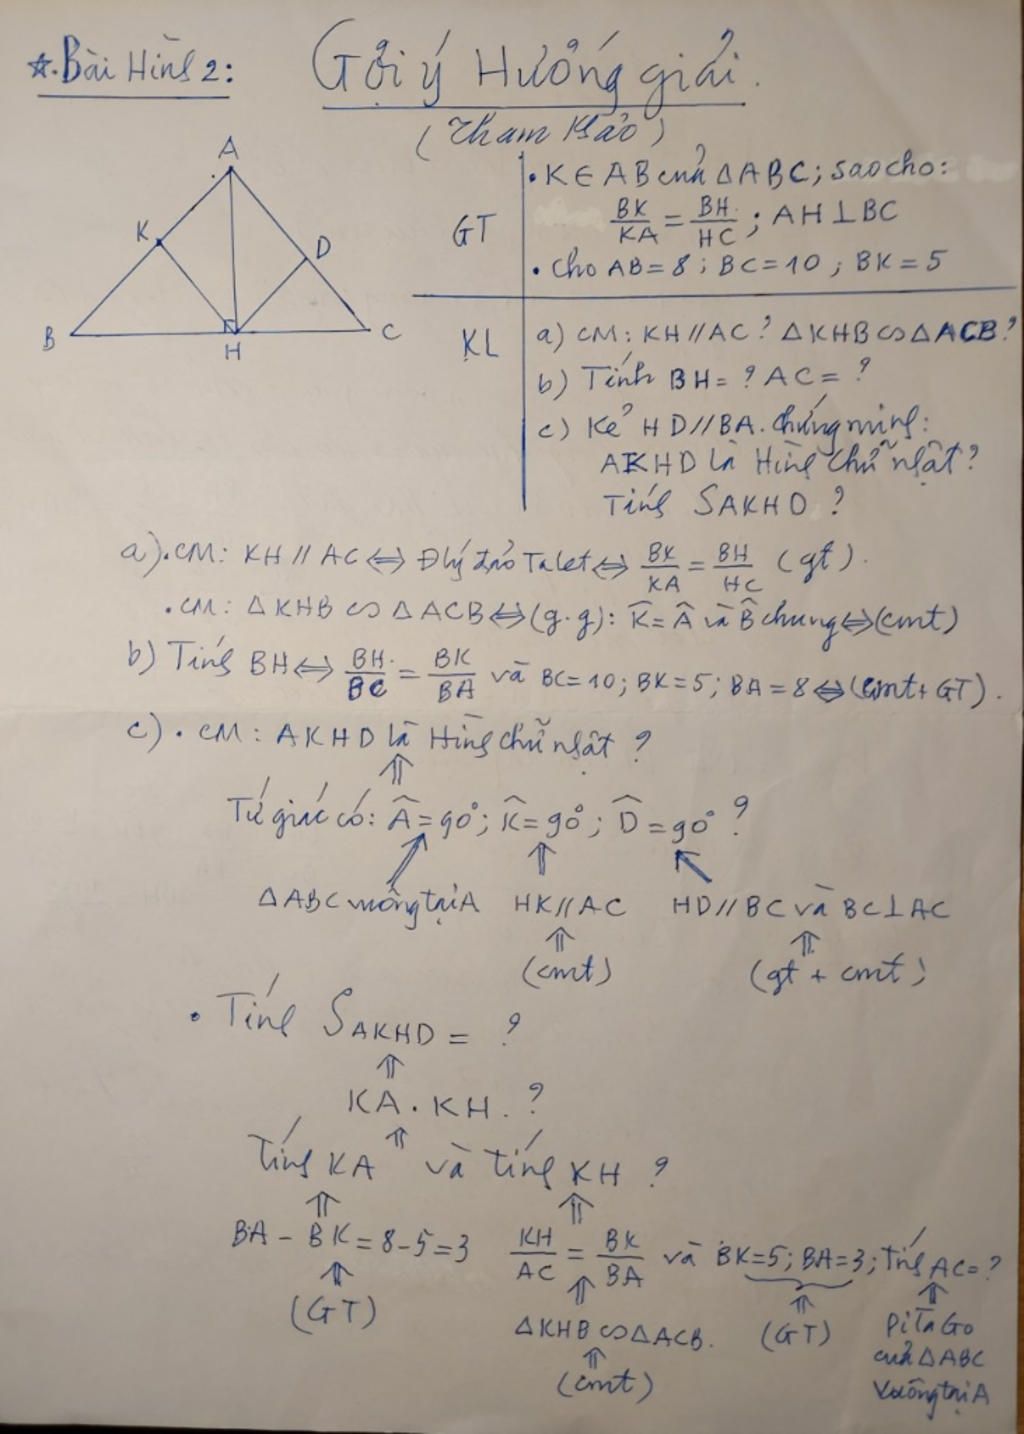 ☆. Bài Hình 2:
Gợi ý Hướng giải.
(Tham khảo)
A
K
D
B
H
C
GT
• K ∈ AB của ΔABC; sao cho:
BK/KA = BH/HC ; AH ⊥ BC
• Cho AB = 8 ; BC = 10 ; BK = 5
KL
a) CM: KH // AC ? ΔKHB ∽ ΔACB ?
b) Tính BH = ? AC = ?
c) Kẻ HD // BA. Chứng minh:
AKHD là Hình chữ nhật ?
Tính SAKHD ?
a) • CM: KH // AC ⇔ Đlý đảo Talet ⇔ BK/KA = BH/HC (gt).
• CM: ΔKHB ∽ ΔACB ⇔ (g.g): K̂ = Â và B̂ chung ⇔ (cmt)
b) Tính BH ⇔ BH/BC = BK/BA và BC = 10; BK = 5; BA = 8 ⇔ (cmt + GT).
c) • CM: AKHD là Hình chữ nhật ?
⇑
Tứ giác có: Â = 90°; K̂ = 90°; D̂ = 90° ?
⇑ ⇑ ⇑
ΔABC vuông tại A HK // AC HD // BC và BC ⊥ AC
⇑ ⇑
(cmt) (gt + cmt)
• Tính SAKHD = ?
⇑
KA . KH. ?
⇑
Tính KA và tính KH ?
⇑ ⇑
BA − BK = 8 − 5 = 3 KH/AC = BK/BA và BK = 5; BA = 3; Tính AC = ?
⇑ ⇑ ⇑ ⇑
(GT) ΔKHB ∽ ΔACB. (GT) PiTaGo
⇑ của ΔABC
(cmt) Vuông tại A